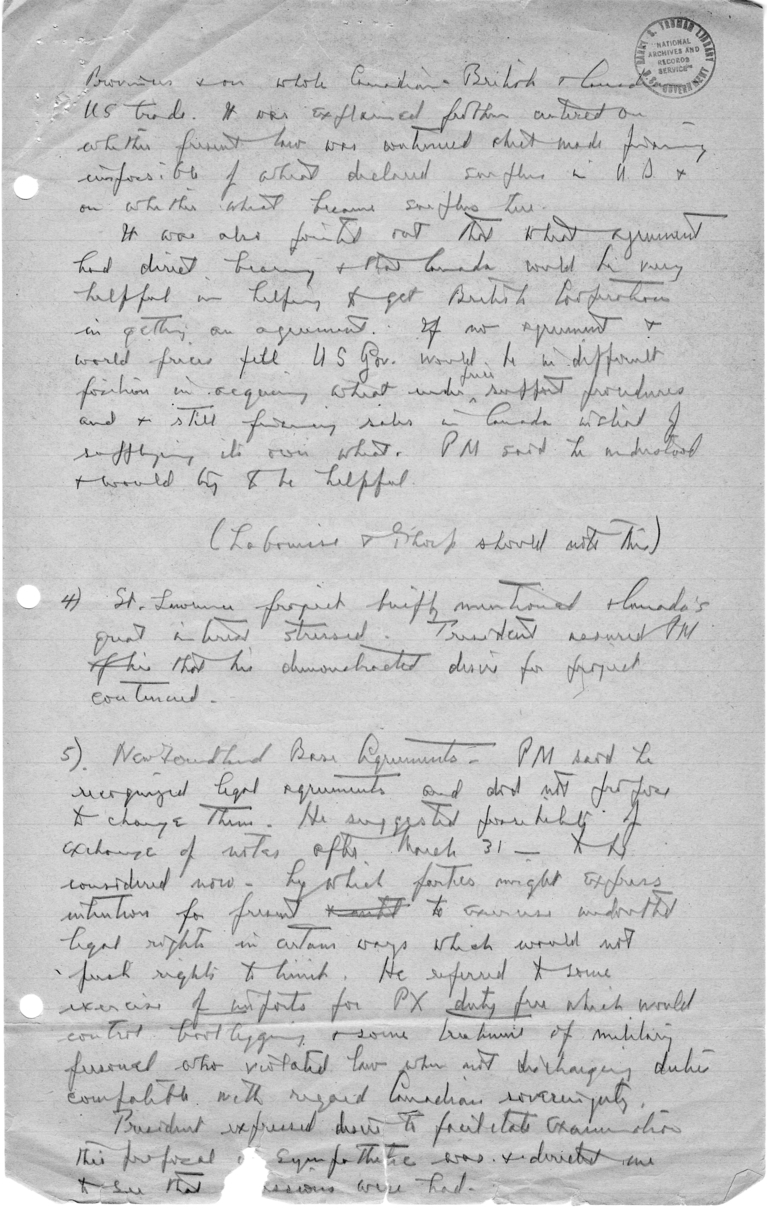 HARRY S. TRUMAN LIBRARY
NATIONAL
ARCHIVES AND
RECORDS
SERVICE
U.S. GOVERNMENT
Provinces + on whole Canadian - British +
US trade. It was explained problem centered on
whether present law was continued which made financing
impossible if wheat declared surplus in U S +
on whether wheat became surplus here.
It was also pointed out that wheat agreement
had direct bearing + that Canada would be very
helpful in helping to get British Cooperation
in getting an agreement. If no agreement +
world prices fell US Gov. would be in difficult
position in acquiring wheat under price support procedures
and + still financing sales in Canada instead of
supplying its own wheat. PM said he understood
+ would try to be helpful.
(Labouisse + Thorp should note this)
4) St. Lawrence project briefly mentioned + Canada's
great interest stressed. President assured PM
that his demonstrated desire for project
continued.
5). Newfoundland Base Agreements - PM said he
recognized legal agreements and did not propose
to change them. He suggested possibility of
exchange of notes after March 31 - to be
considered now - by which parties might express
intention for present to exercise undoubted
legal rights in certain ways which would not
push rights to limit. He referred to some
exercise of imports for PX duty free which would
control bootlegging + some treatment of military
personnel who violated law when not discharging duties
compatible with regard Canadian sovereignty.
President expressed desire to facilitate examination
this proposal in sympathetic way + directed me
to see that were had.